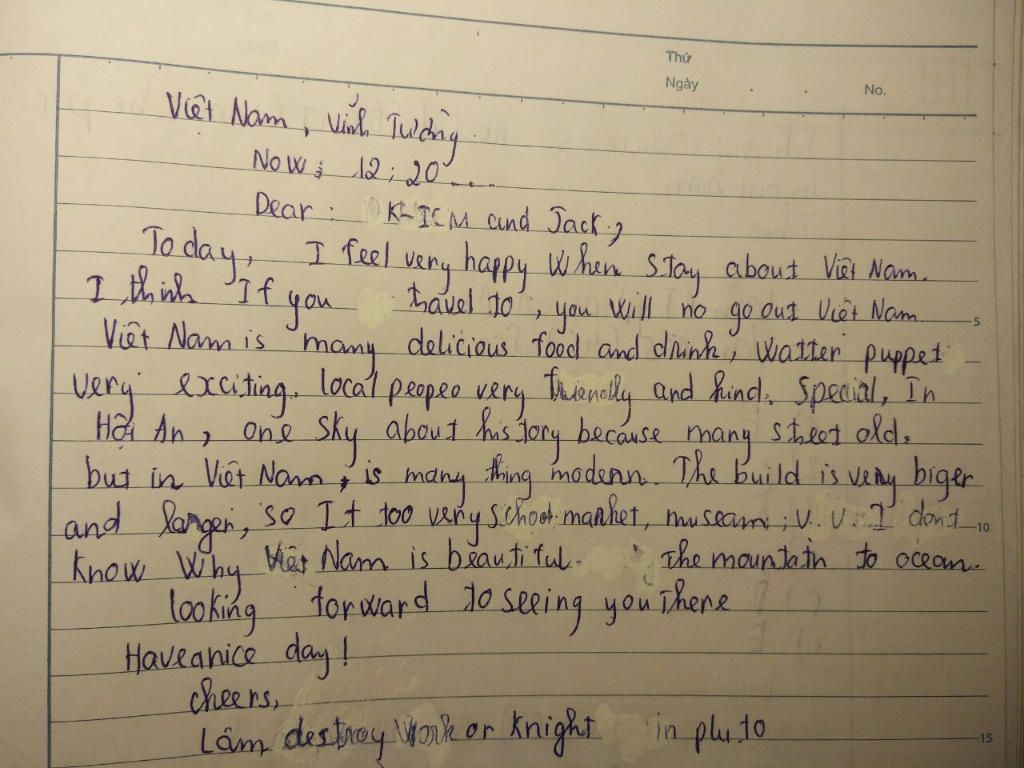 Thứ
Ngày . . No.
Việt Nam, Vĩnh Tường.
Now; 12:20....
Dear: and Jack,
Today, I feel very happy When Stay about Việt Nam.
I think If you travel to, you will no go out Việt Nam
5
Việt Nam is many delicious food and drink, Watter puppet
very exciting. local peopeo very friendly and kind. Special, In
Hội An, one sky about history because many steet old.
but in Việt Nam, is many thing modern. The build is very biger
and larger, so It too very school market, museam; v.. v.. I dont
10
know Why Việt Nam is beautiful. The mountain to ocean.
looking forward to seeing you There
Haveanice day!
cheers,
Lâm destroy Work or Knight in pluto
15